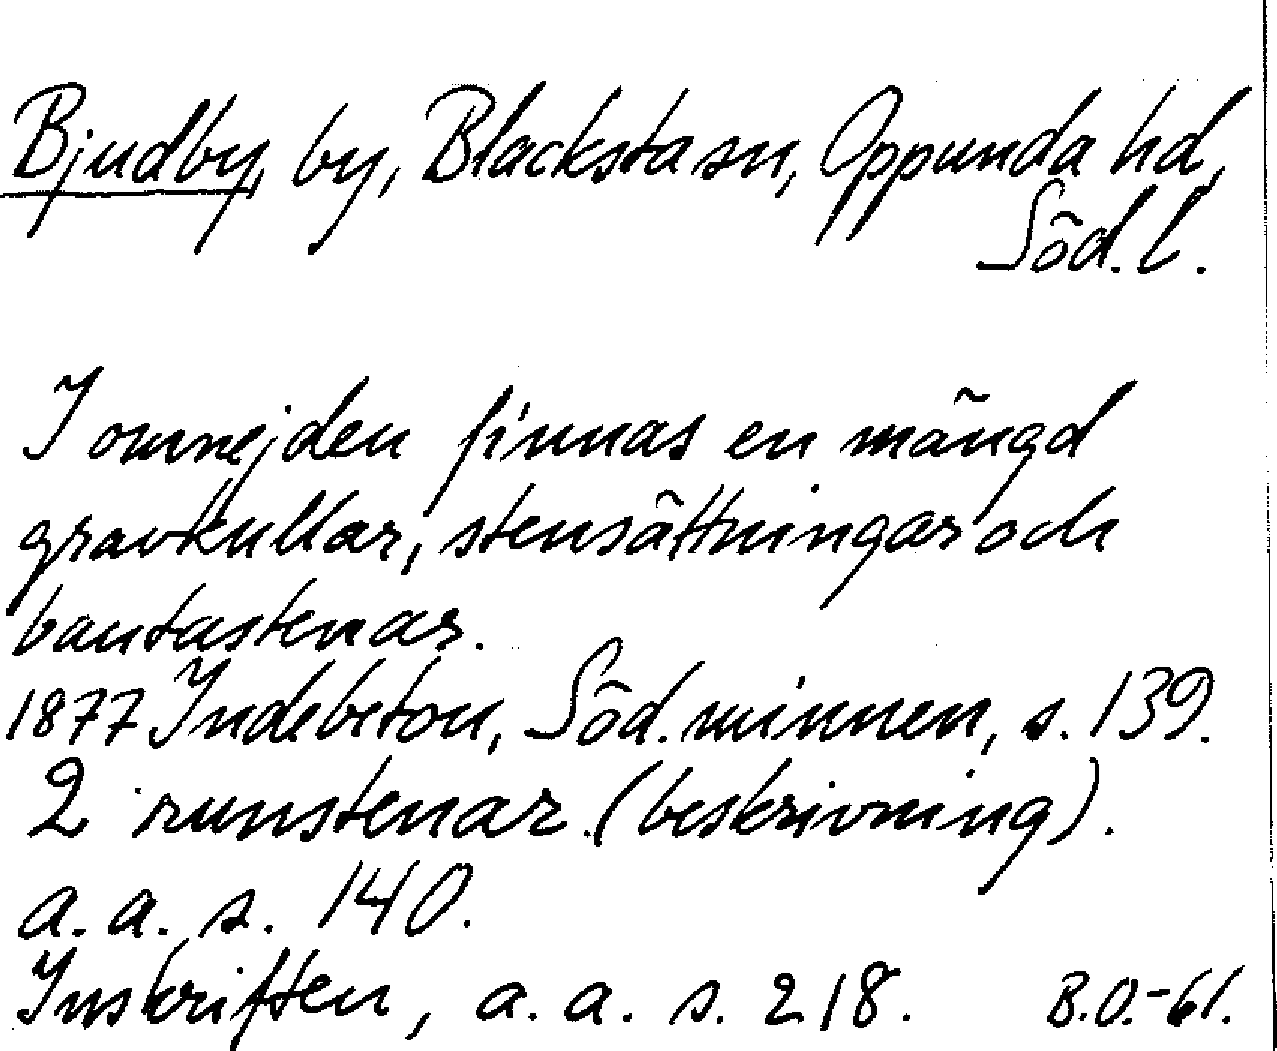 Bjudby, by, Blacksta sn, Oppunda hd,
Söd. l.
I omnejden finnas en mängd
gravkullar, stensättningar och
bautastenar.
1877 Indebetou, Söd. minnen, s. 139.
2 runstenar (beskrivning).
a. a. s. 140.
Inskriften, a. a. s. 218. B.O.-61.